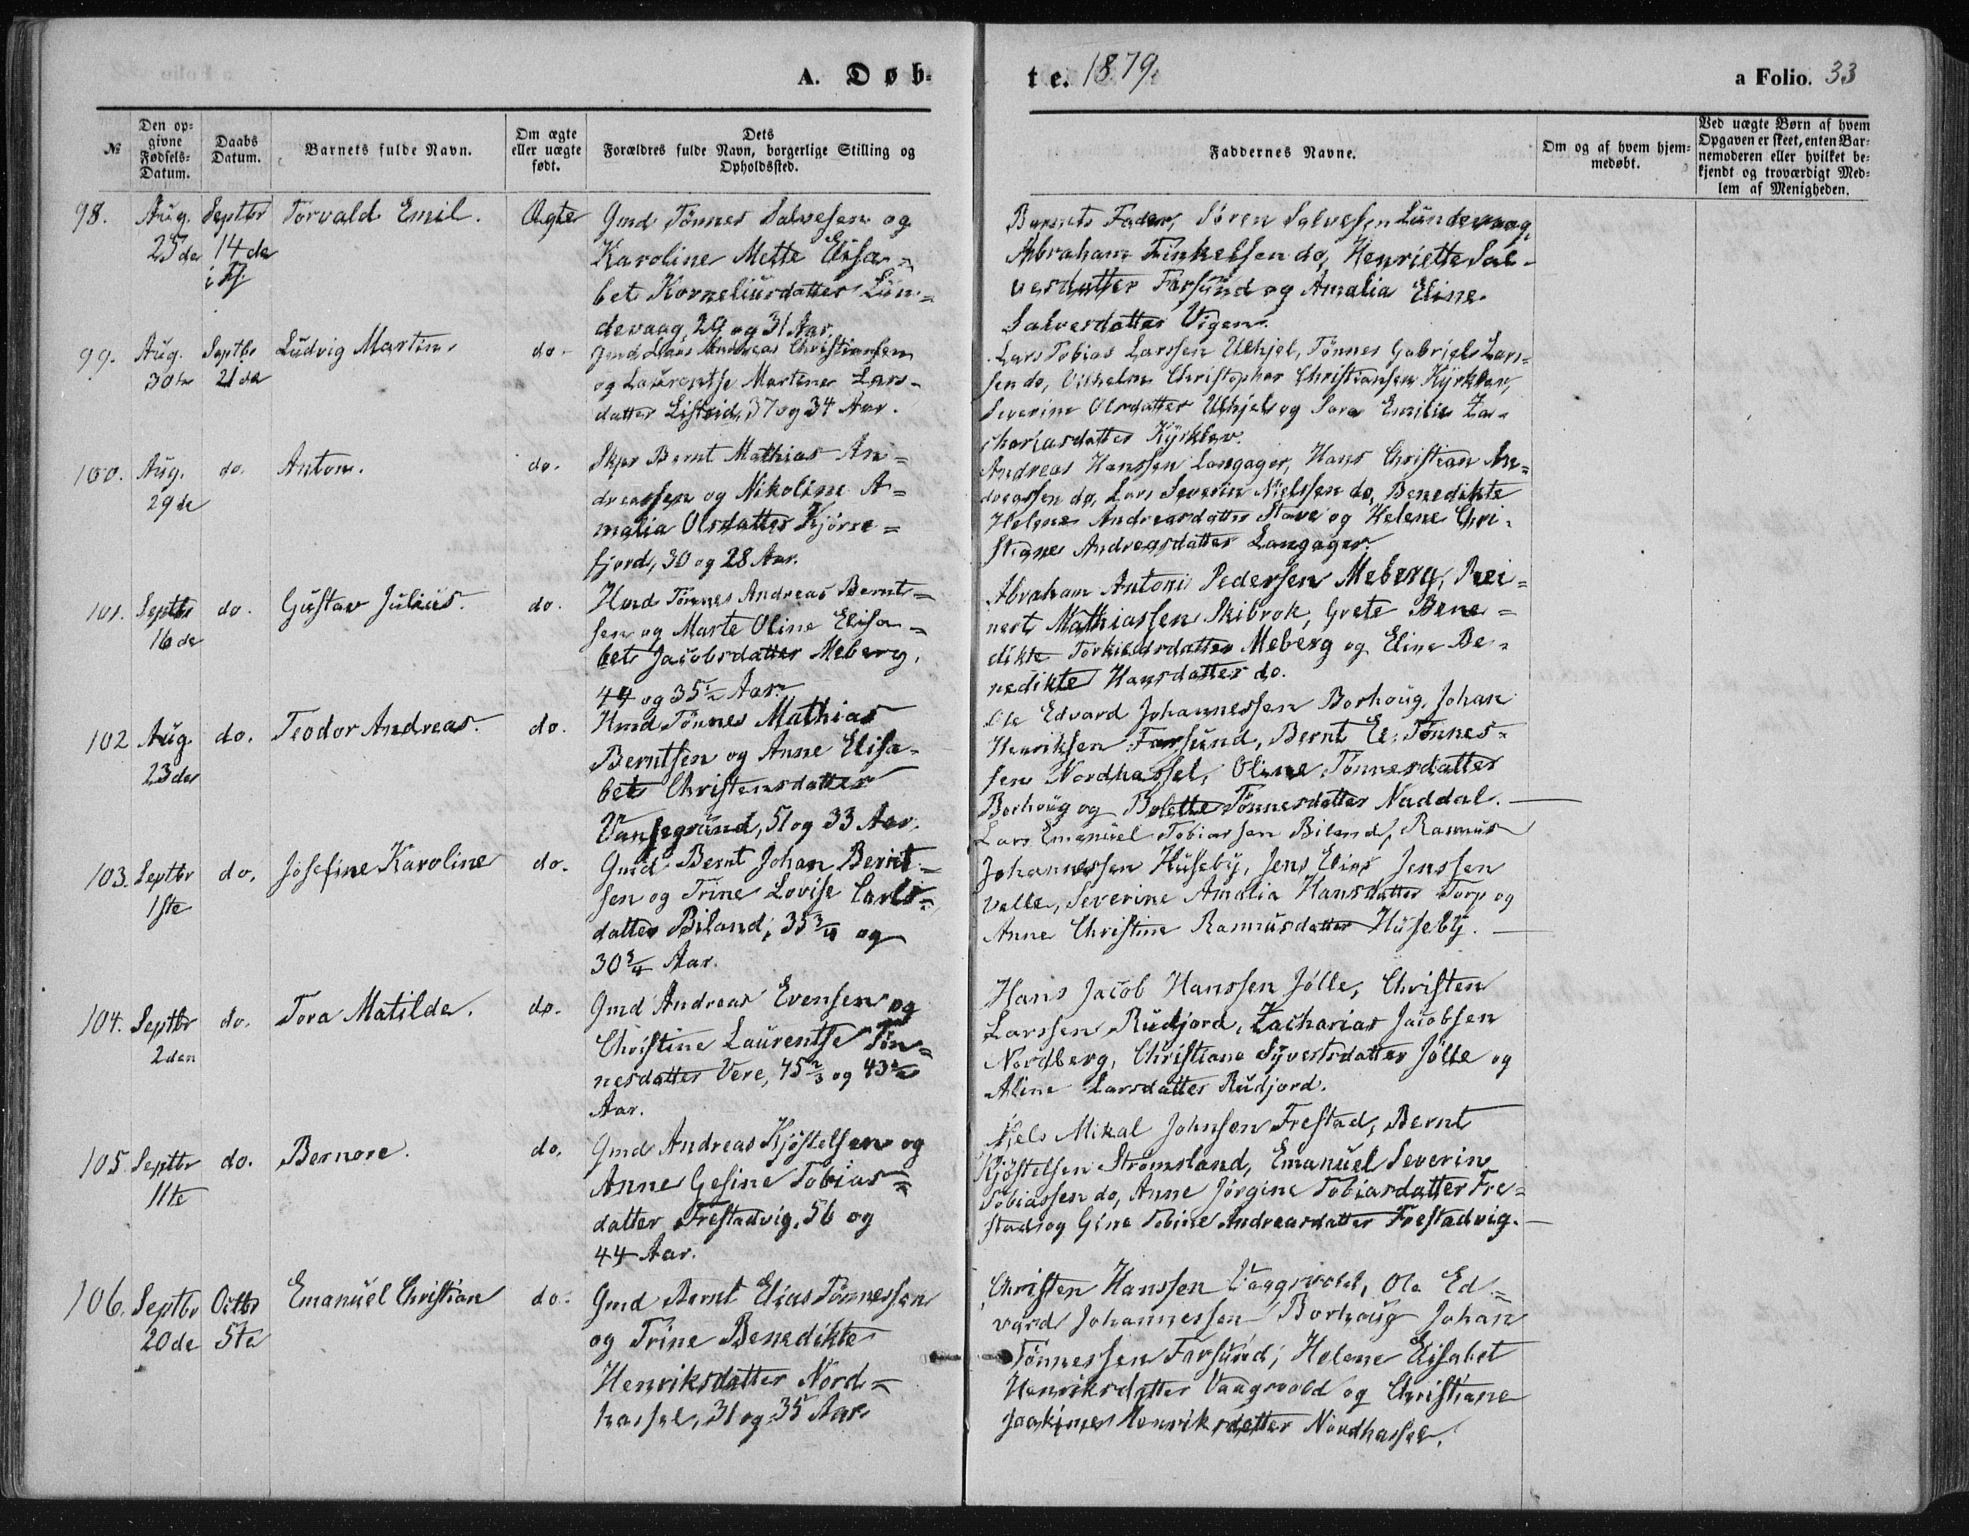 A. Døb-
te. 1879.
a Folio. 33
№
Den op-
givne
Fødsels-
Datum.
Daabs
Datum.
Barnets fulde Navn.
Om ægte
eller uægte
født.
Dets
Forældres fulde Navn, borgerlige Stilling og
Opholdssted.
Faddernes Navne.
Om og af hvem hjem-
medøbt.
Ved uægte Børn af hvem
Opgaven er skeet, enten Bar-
nemoderen eller hvilket be-
kjendt og troværdigt Med-
lem af Menigheden.
98.
Aug.
25de
Septbr
14de
Torvald Emil.
Ægte
Gmd Tønnes Salvesen og
Karoline Mette Elisa-
bet Korneliusdatter Lun-
devaag, 29 og 31 Aar.
Barnets Fader, Søren Salvesen Lundevaag,
Abraham Finkelsen do, Henriette Sal-
vesdatter Farsund og Amalia Eline
Salvesdatter Vigen.
99.
Aug.
30te
Septbr
21de
Ludvig Martin.
do.
Gmd Lars Andreas Christiansen
og Laurentse Martine Lars-
datter Listeid, 37 og 34 Aar.
Lars Tobias Larssen Ulhjel, Tønnes Gabriel Lars-
sen do, Vilhelm Christopher Christiansen
Severine Olsdatter Ulhjel og Sara Emilie Za-
chariasdatter
100.
Aug.
29de
do.
Anton.
do.
Skpr Bernt Mathias An-
dreassen og Nikoline A-
malia Olsdatter Kjørre-
fjord, 30 og 28 Aar.
Andreas Hanssen Langager, Hans Christian An-
dreassen do, Lars Severin Nielssen do, Benedikte
Helene Andreasdatter Stave og Helene Chri-
stiane Andreasdatter Langager.
101.
Septbr
16de
do.
Gustav Julius.
do.
Hmd Tønnes Andreas Bernt-
sen og Marte Oline Elisa-
bet Jacobsdatter Meberg,
44 og 35½ Aar.
Abraham Antoni Pedersen Meberg, Rei-
nert Mathiassen Skibrok, Grete Bene-
dikte Torkildsdatter Meberg og Eline Be-
nedikte Hansdatter do.
102
Aug.
23de
do.
Teodor Andreas.
do.
Hmd Tønnes Mathias
Berntsen og Anne Elisa-
bet Christensdatter
Vansegrund, 51 og 33 Aar.
Ole Edvard Johannessen Borhoug, Johan
Henriksen Farsund, Bernt El. Tønnes-
sen Nordhassel, Oline Tønnesdatter
Borhoug og Bolette Tønnesdatter Naddal.
103.
Septbr
1ste
do.
Josefine Karoline
do.
Gmd Bernt Johan Bernt-
sen og Trine Lovise Carls-
datter Biland, 35¾ og
30¾ Aar.
Lars Emanuel Tobiassen Biland, Rasmus
Johannessen Huseby, Jens Elias Jenssen
Velle, Severine Amalia Hansdatter Torp og
Anne Christine Rasmusdatter Huseby.
104.
Septbr
2den
do.
Tora Matilde.
do.
Gmd Andreas Evensen og
Christine Laurentse Tøn-
nesdatter Vere, 45⅔ og 43½
Aar.
Hans Jacob Hanssen Jølle, Christen
Larssen Rudjord, Zacharias Jacobsen
Nordberg, Christiane Syvertsdatter Jølle og
Aline Larsdatter Rudjord.
105
Septbr
11te
do.
Bernore.
do.
Gmd Andreas Kjøstelsen og
Anne Gesine Tobias-
datter Frestadvig, 56 og
44 Aar.
Niels Mikal Johnsen Frestad, Bernt
Kjøstelsen Strømsland, Emanuel Severin
Tobiassen do, Anne Jørgine Tobiasdatter Fre-
stad og Gine Tobine Andreasdatter Frestadvig.
106.
Septbr
20de
Octbr
5te
Emanuel Christian
do.
Gmd Bernt Elias Tønnessen
og Trine Benedikte
Henriksdatter Nord-
hassel, 31 og 35 Aar.
Christen Hanssen Vaagsvold, Ole Ed-
vard Johannessen Borhoug Johan
Tønnessen Farsund, Helene Elisabet
Henriksdatter Vaagsvold og Christiane
Joakime Henriksdatter Nordhassel.